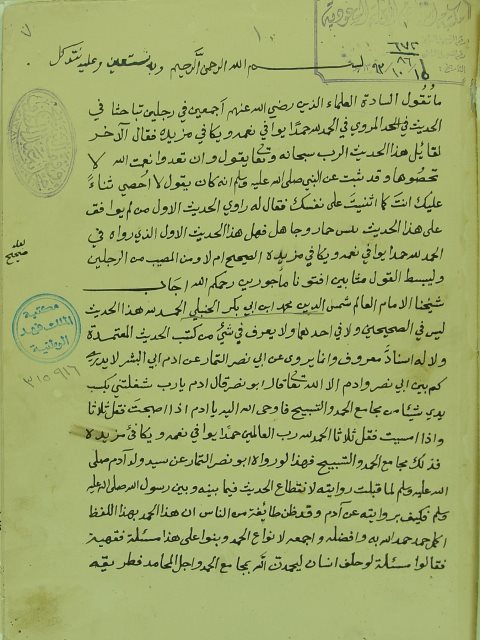 بسم الله الرحمن الرحيم وبه نستعين وعليه نتوكل
ما تقول السادة العلماء الذين رضي الله عنهم اجمعين في رجلين تباحثا في
الحديث في الحمد المروي في الحمد لله حمدا يوافي نعمه ويكافي مزيده فقال الآخر
لقايل هذا الحديث الرب سبحانه وتعالى يقول وان تعدوا نعمت الله لا
تحصوها وقد ثبت عن النبي صلى الله عليه وسلم انه كان يقول لا احصي ثناءً
عليك انت كما اثنيت على نفسك فقال له راوي الحديث الاول من لم يوافق
على هذا الحديث تيس حمار وجاهل فهل هذا الحديث الاول الذي رواه في
الحمد لله حمدا يوافي نعمه ويكافي مزيده الصحيح ام لا ومن المصيب من الرجلين
وليبسط القول مثابين افتونا ماجورين رحمكم الله اجاب
شيخنا الامام العالم شمس الدين محمد ابن ابي بكر الحنبلي الحمد لله هذا الحديث
ليس في الصحيحين ولا في احدهما ولا يعرف في شيء من كتب الحديث المعتمدة
ولا له اسناد معروف وانما يروى عن ابي نصر التمار عن ادم ابي البشر لا يدرى
كم بين ابي نصر وادم الا الله تعالى قال ابو نصر قال ادم يارب شغلتني بكسب
يدي شيئا من مجامع الحمد والتسبيح فاوحى الله اليه يا ادم اذا اصبحت فقل ثلاثا
واذا امسيت فقل ثلاثا الحمد لله رب العالمين حمدا يوافي نعمه ويكافي مزيده
فذلك مجامع الحمد والتسبيح فهذا لو رواه ابو نصر التمار عن سيد ولد آدم صلى
الله عليه وسلم لما قبلت روايته لانقطاع الحديث فيما بينه وبين رسول الله صلى الله عليه
وسلم فكيف بروايته عن آدم وقد ظن طائفة من الناس ان هذا الحمد بهذا اللفظ
اكمل حمد حمد الله به وافضله واجمعه لانواع الحمد وبنوا على هذا مسئلة فقهية
فقالوا مسئلة لو حلف انسان ليحمدن الله بمجامع الحمد واجل المحامد فطريقه
مكتبة
الملك فهد
الوطنية
٣١٥٩١٦